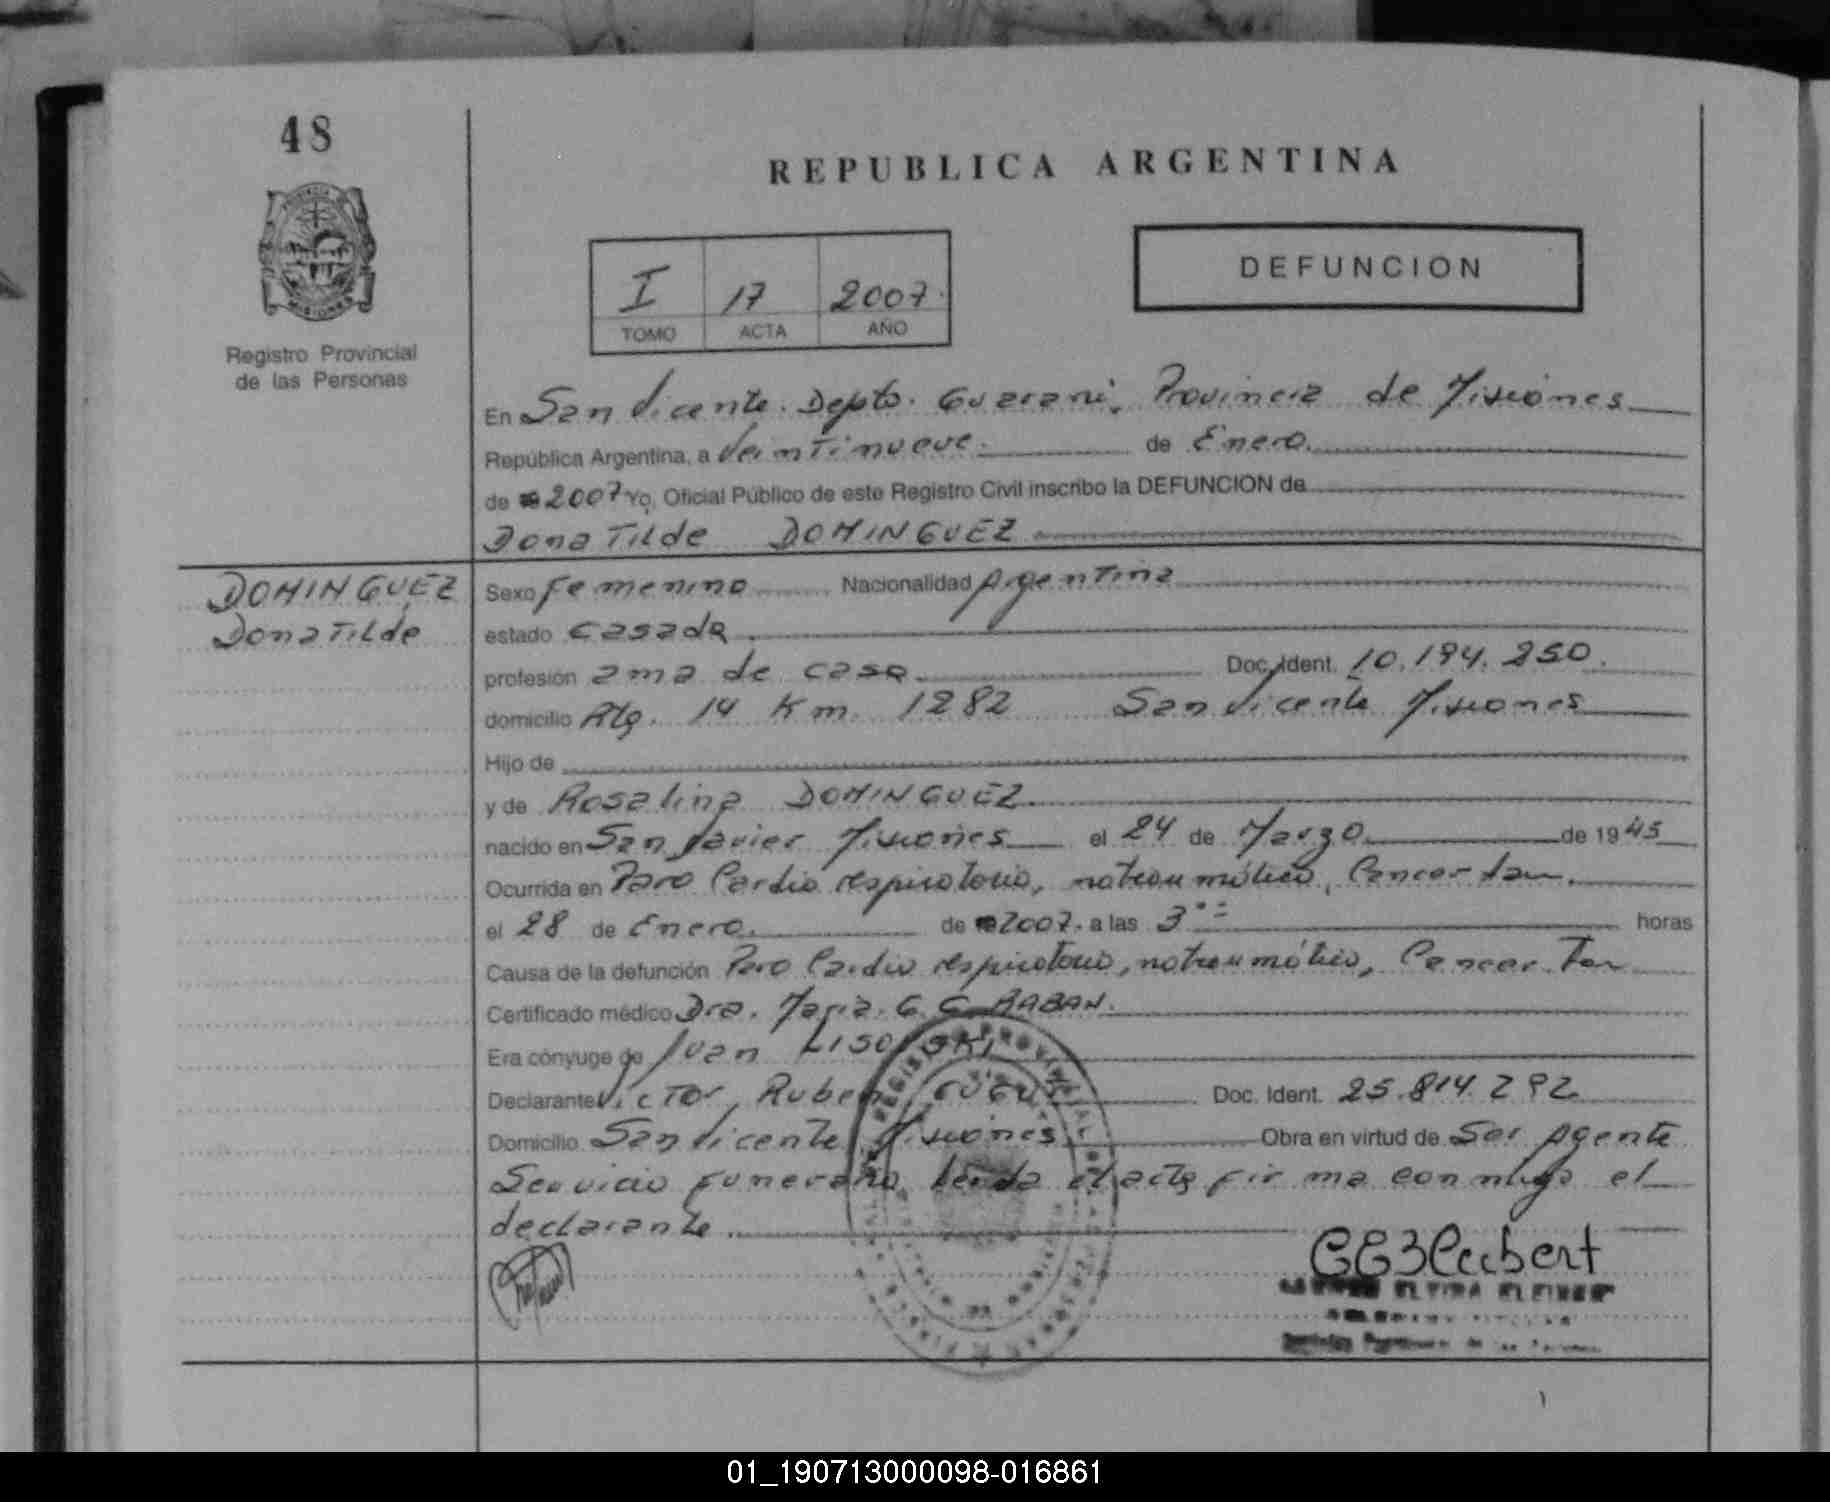 48
REPUBLICA ARGENTINA
DEFUNCION
I 17 2007.
TOMO ACTA AÑO
Registro Provincial
de las Personas
En San Vicente. Depto. Guarani, Provincia de Misiones
República Argentina, a Veintinueve. de Enero.
de 2007 Yo, Oficial Público de este Registro Civil inscribo la DEFUNCION de
Dona Tilde DOMINGUEZ
DOMINGUEZ
Dona Tilde
Sexo Femenino Nacionalidad Argentina
estado casada.
profesión ama de casa. Doc. Ident. 10.194.250.
domicilio Alg. 14 Km. 1282 San Vicente Misiones
Hijo de
y de Rosalina DOMINGUEZ.
nacido en San Javier Misiones el 24 de Marzo de 1945
Ocurrida en Paro Cardio respiratorio, no traumático, Cancer
el 28 de Enero. de 2007. a las 3 horas
Causa de la defunción Paro Cardio respiratorio, no traumático, Cancer
Certificado médico Dra. Maria. G. C. RABAN.
Era cónyuge de Juan
Declarante Victor Ruben Doc. Ident. 25.814.292
Domicilio San Vicente Misiones. Obra en virtud de Ser Agente
Servicio funerario, leida el acta firma conmigo el
declarante.
ELVIRA
01_190713000098-016861